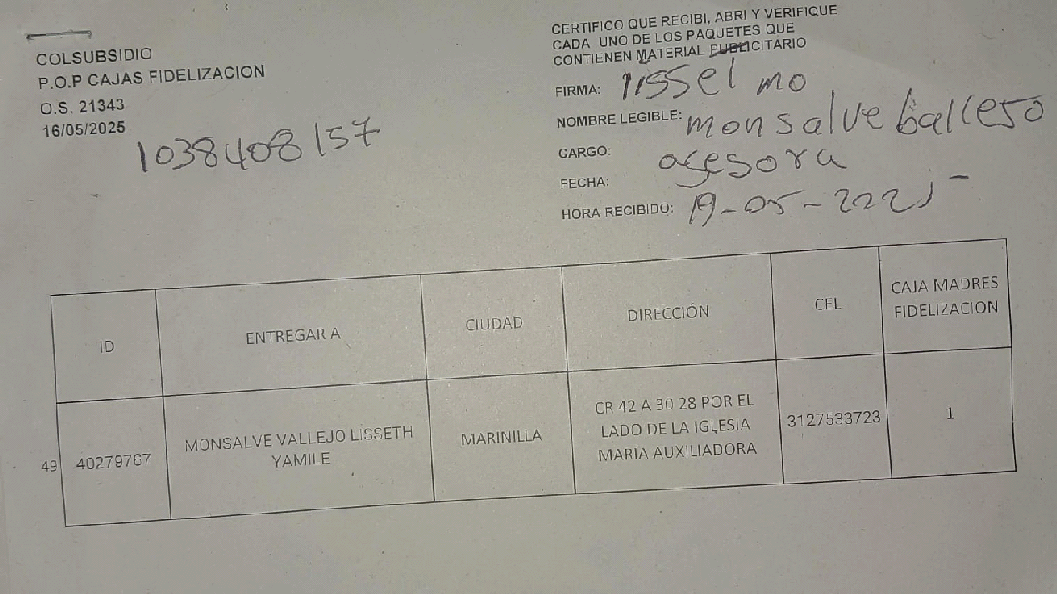 COLSUBSIDIO
P.O.P CAJAS FIDELIZACION
O.S. 21343
16/05/2025
1038408157
CERTIFICO QUE RECIBI, ABRI Y VERIFIQUE
CADA UNO DE LOS PAQUETES QUE
CONTIENEN MATERIAL PUBLICITARIO
FIRMA: lissel mo
NOMBRE LEGIBLE: monsalve
CARGO: asesora
FECHA:
HORA RECIBIDO: 19-05-
ID ENTREGAR A CIUDAD DIRECCIÓN CEL CAJA MADRES
FIDELIZACION
49 40279767 MONSALVE VALLEJO LISSETH
YAMILE
MARINILLA
CR 42 A 30 28 POR EL
LADO DE LA IGLESIA
MARIA AUXILIADORA
3127533723
1